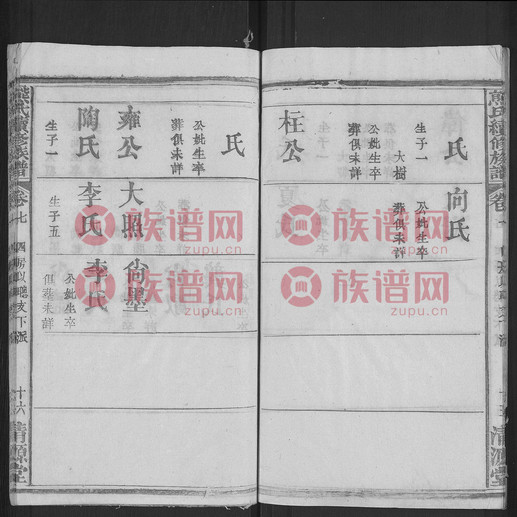 熊氏續修族譜
卷
清源堂
氏
生子一
大樹
向氏
公妣生卒
葬俱未詳
枉公
公妣生卒
葬俱未詳
氏
公妣生卒
葬俱未詳
雍公
陶氏
生子一
大照
李氏
生子五
尚墨
李氏
公妣生卒
俱葬未詳
熊氏續修族譜
卷七
四房以聰支下派
十六
清源堂
族谱网
zupu.cn
族谱网
zupu.cn